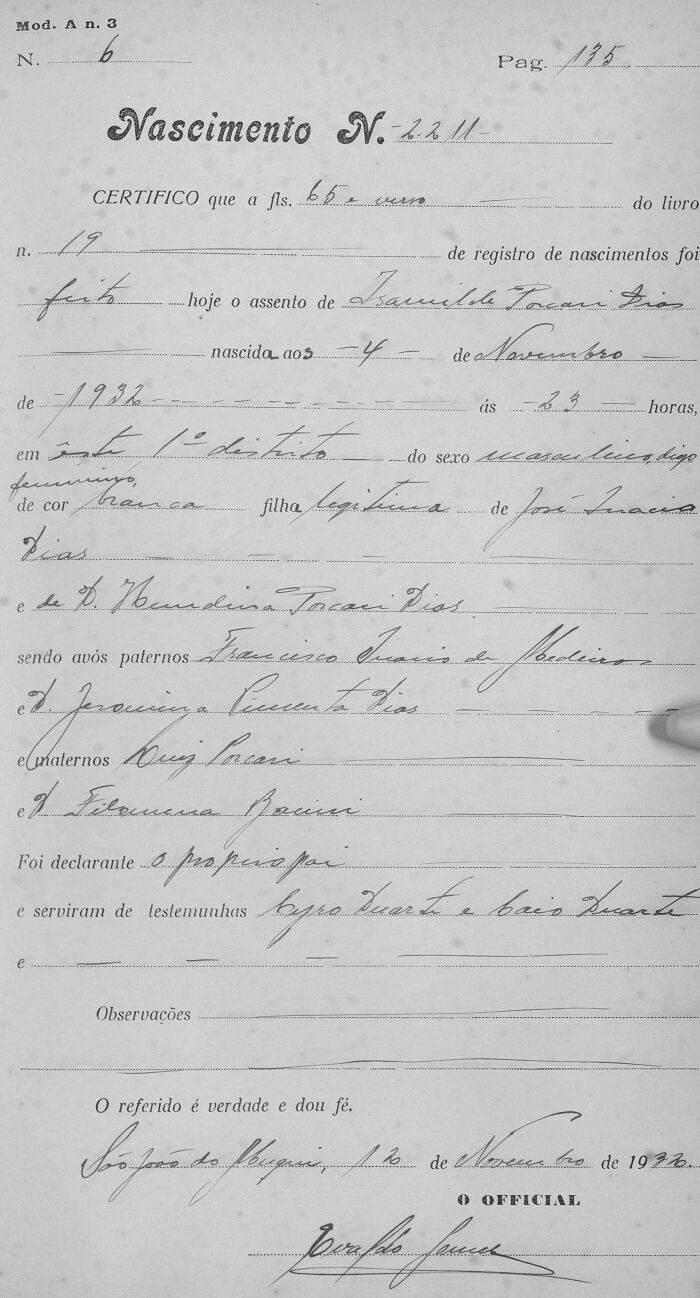 Mod. A n. 3
N. 6 Pag. 135
Nascimento N. -2211-
CERTIFICO que a fls. 65 e verso do livro
n. 19 de registro de nascimentos foi
feito hoje o assento de Isamilde Porcari Dias
nascida aos -4- de Novembro
de -1932- ás -23 horas,
em êste 1º distrito do sexo masculino, digo
feminino,
de cor branca filha legitima de José Inacio
Dias
e de D. Porcari Dias
sendo avós paternos Francisco Inacio de Medeiros
e D. Jeronimza Pimenta Dias
e maternos Luiz Porcari
e D. Filomena
Foi declarante o propirio pai
e serviram de testemunhas Cyro Duarte e Caio Duarte
e
Observações
O referido é verdade e dou fé.
São João do Muqui, 12 de Novembro de 1932.
O OFFICIAL